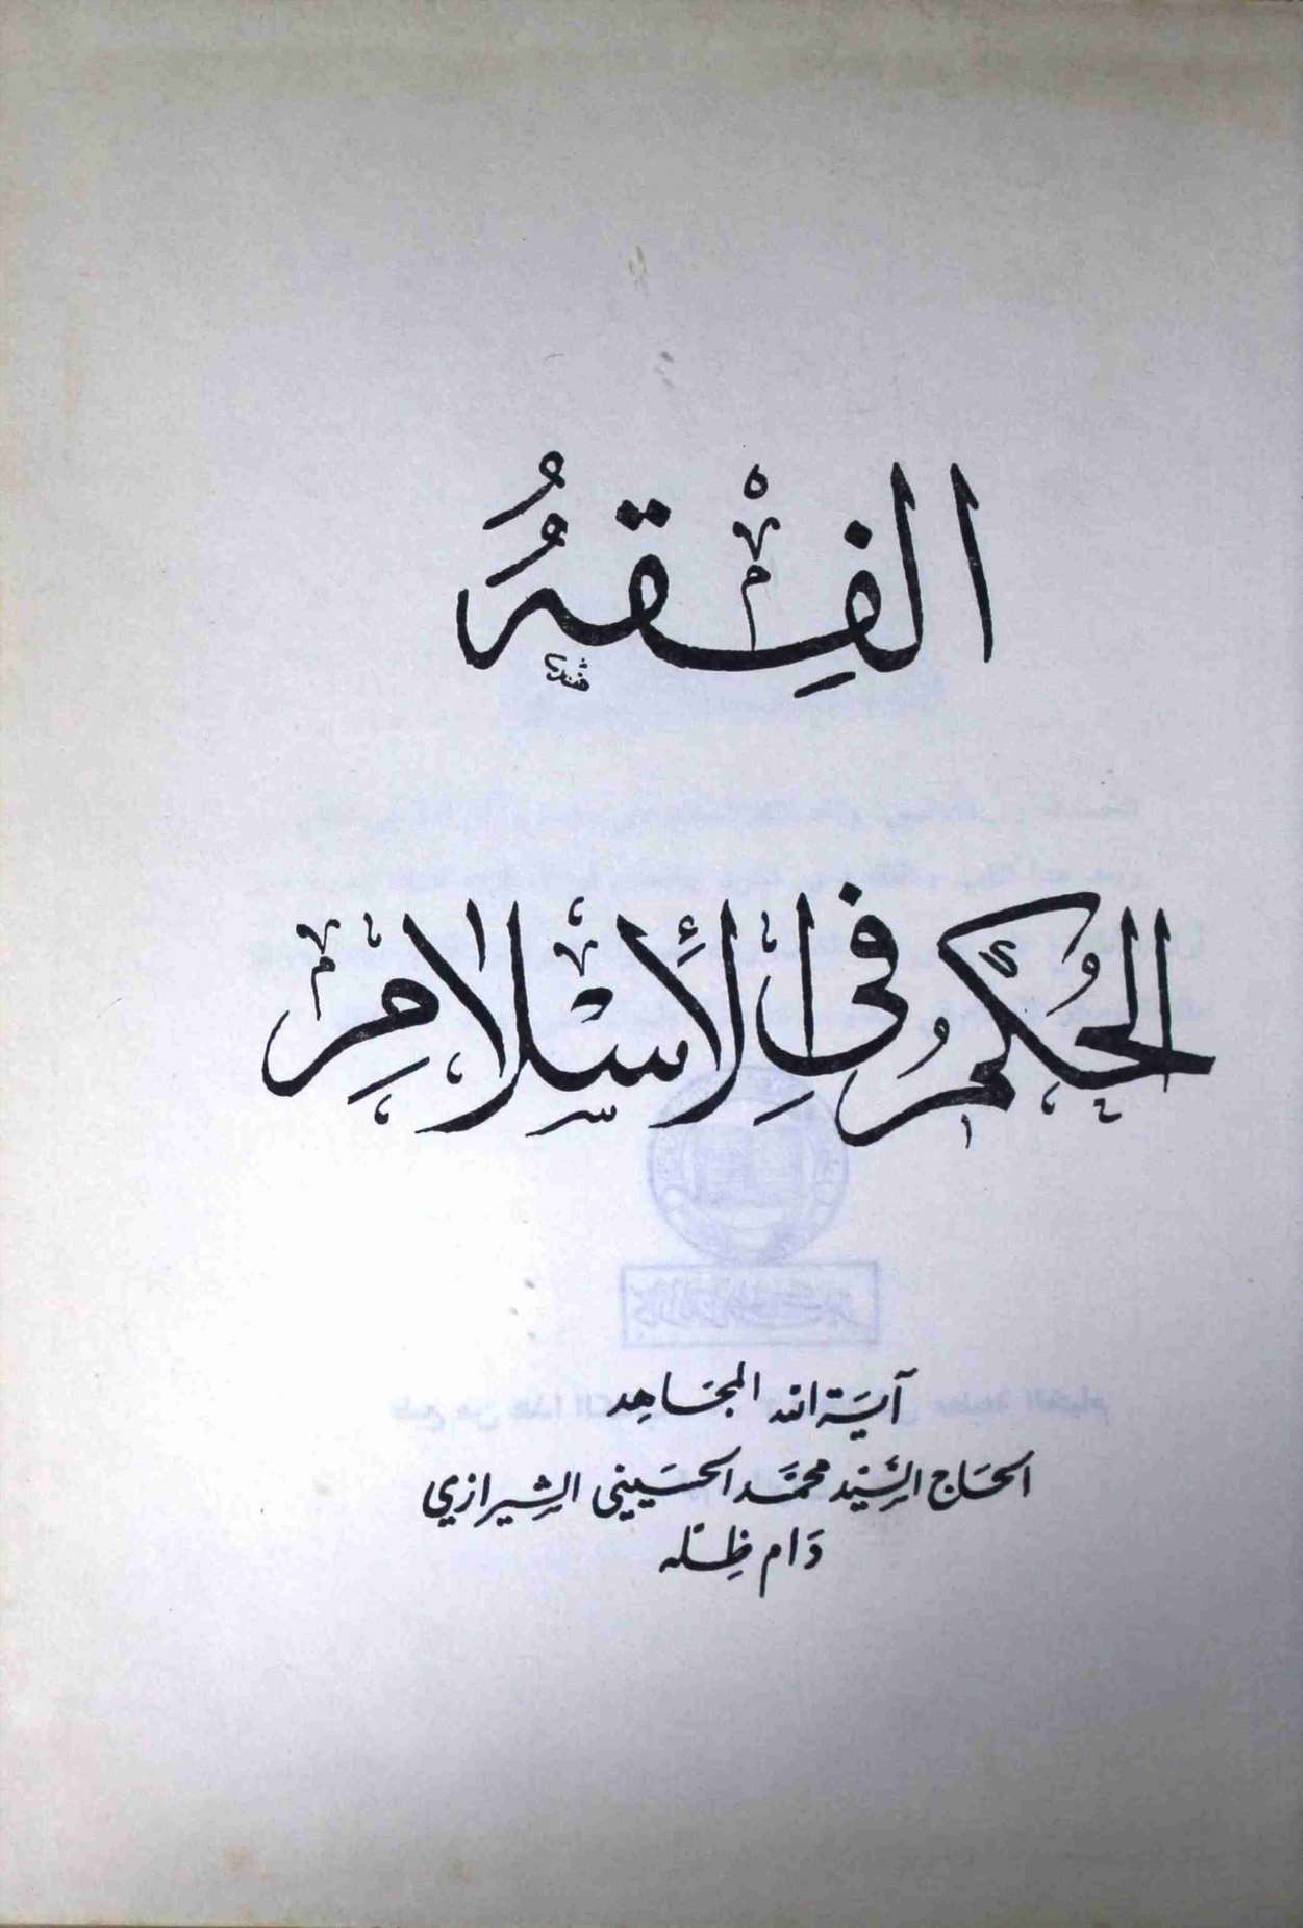 الفِقهُ
الحُكم في الإسلامِ
آية الله المجَاهِد
الحَاج السَّيّد محمَّد الحسَيني الشِيرازي
دَام ظِلّه